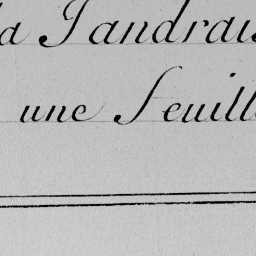 la Tandrais
une Feuill